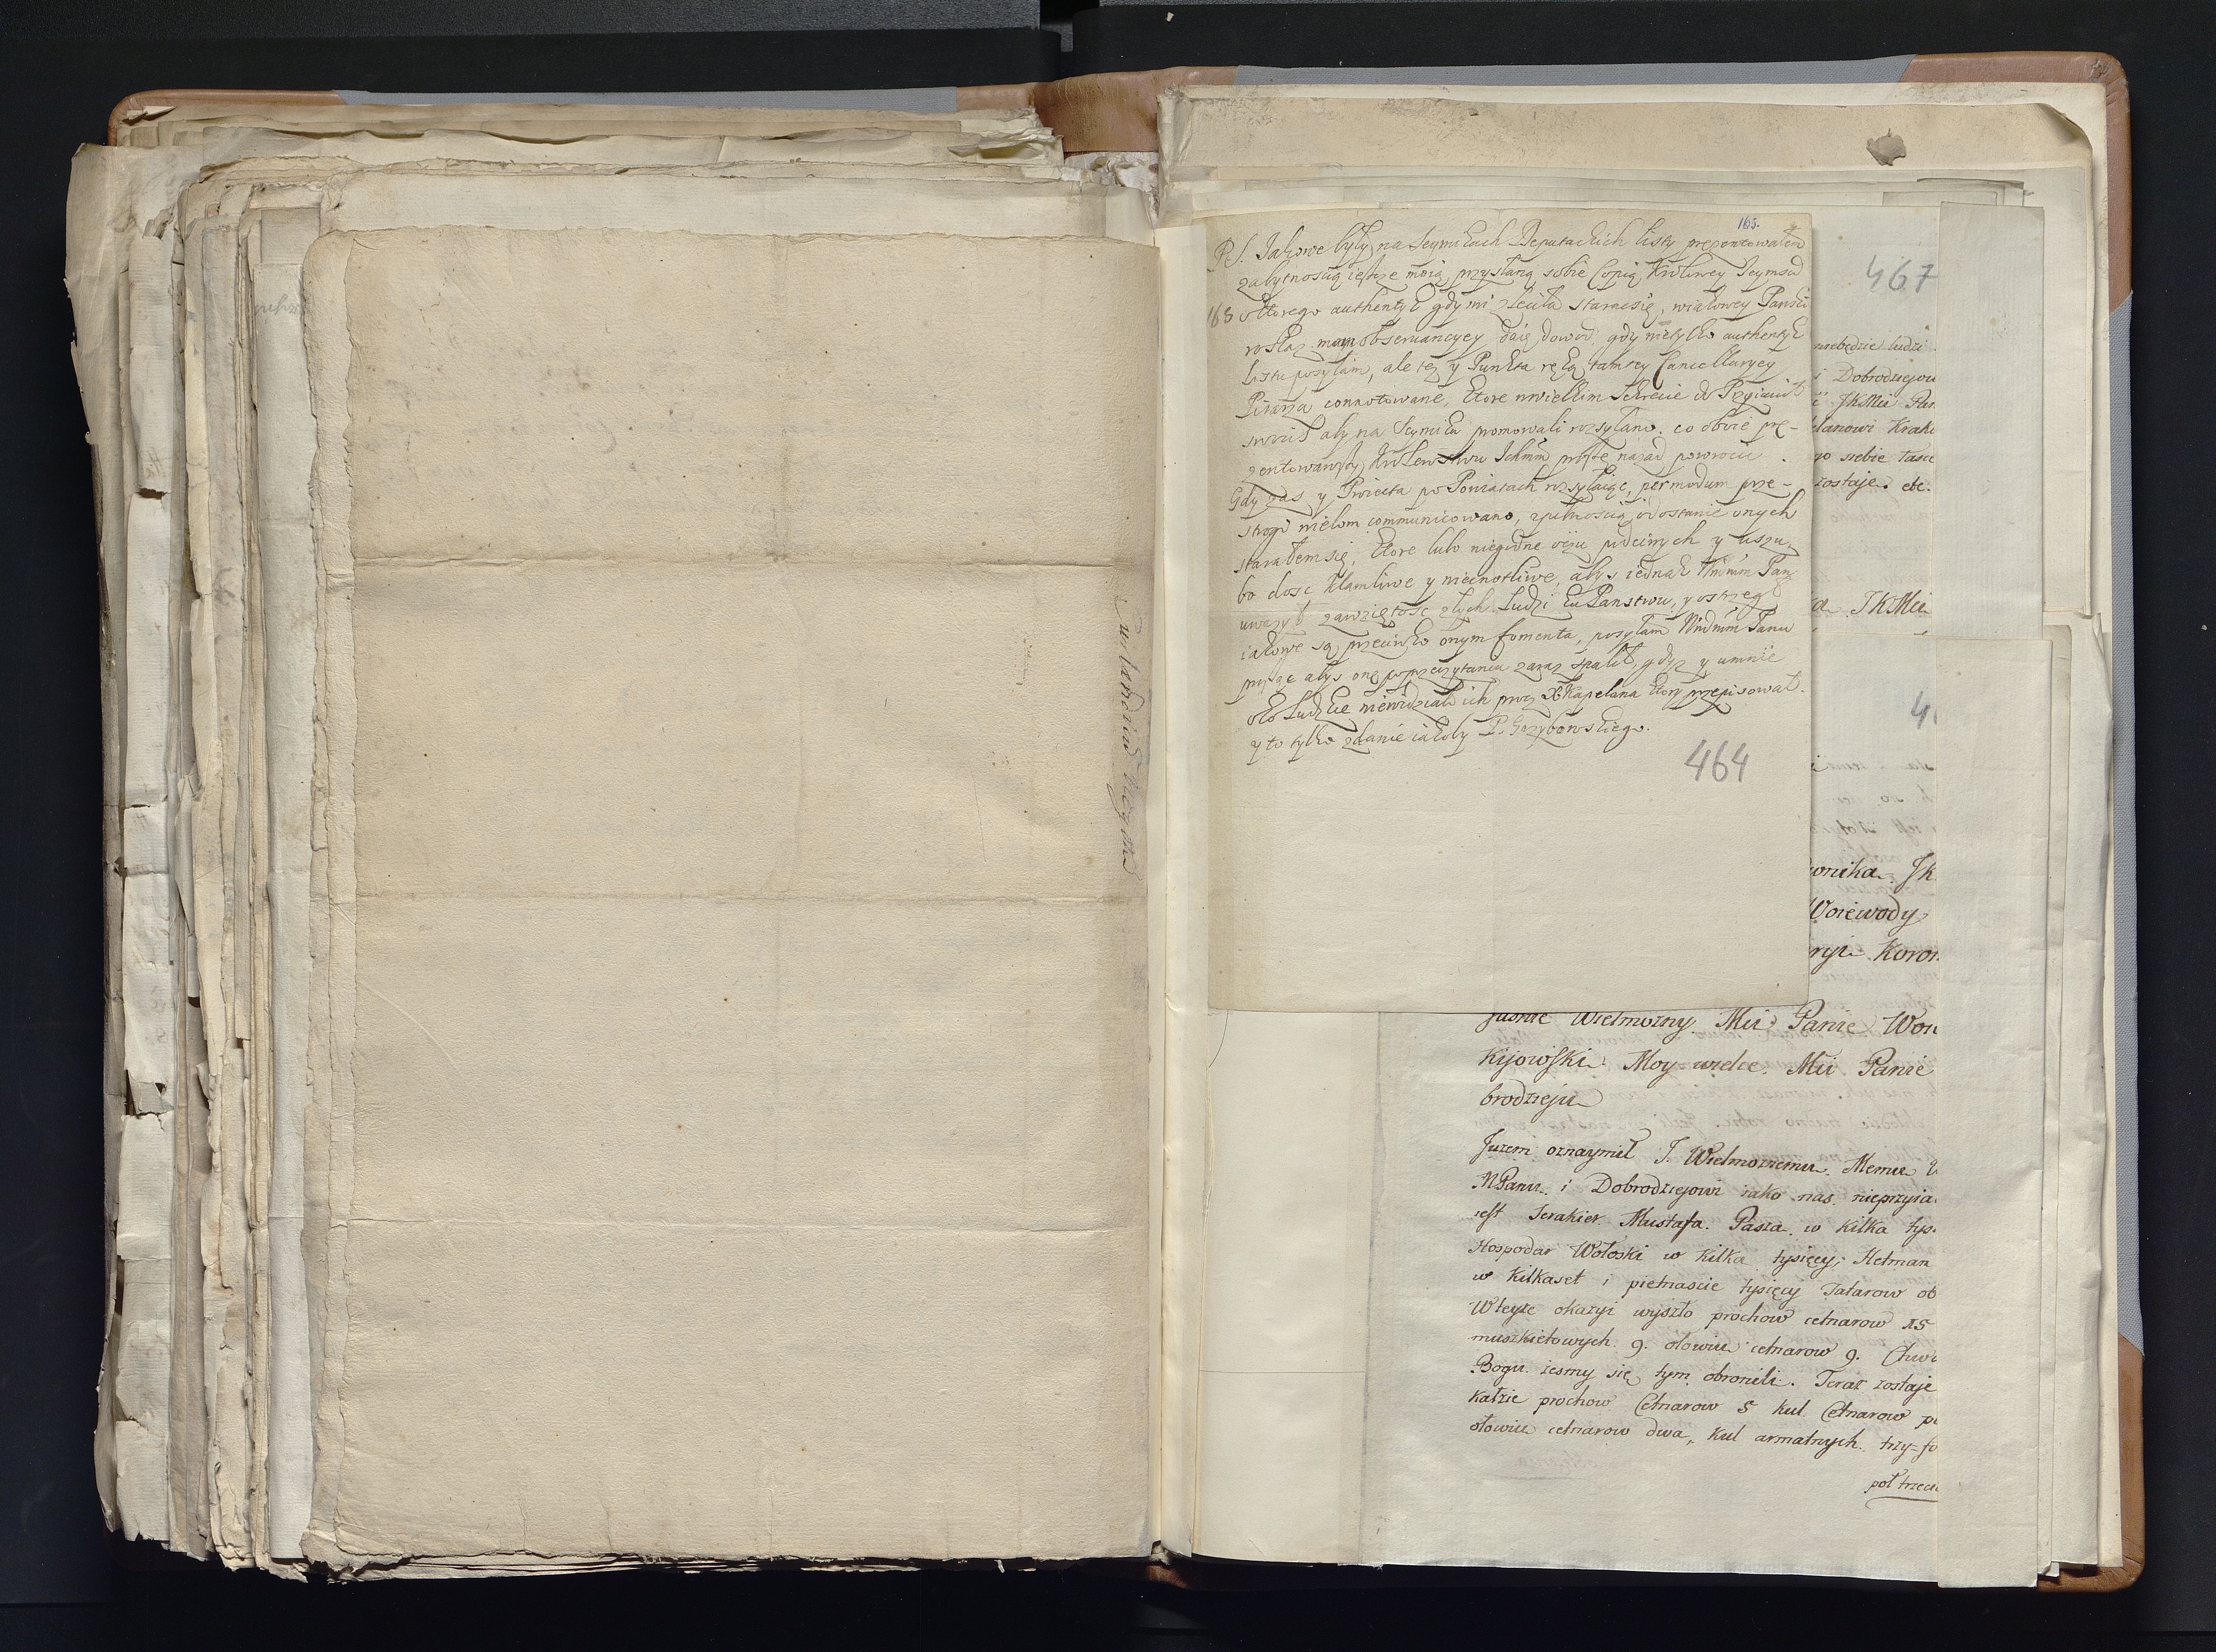 165.
P.S. Jakowe były na Seymikach Deputackich listy prezentowałem
za bytnoscią ieszcze moią, przysłaną sobie Copią Krolowey Jeymsci
165 ktorego authentyk gdy mi zleciła staracsię, w iakowey Panski
roskaz mam observancyey daię dowod, gdy nietylko authentyk
listu posyłam, ale tez y Punkta ręką tamtey Cancellaryey
Pisarza connotowane, ktore w wielkim Sekrecie do Przyiacioł
swoich aby na Seymiku promowali rozsyłano. co oboie pre-
zentowawszy Krolewstwu Ichmm proszę nazad powrocic.
Gdy zas y Proiekta po Powiatach rozsyłaiąc, per modum prze-
strogi wielom communicowano, z pilnoscią o dostanie onych
starałem się, ktore lubo niegodne oczu poczciwych y uszu,
bo dosc kłamliwe y niecnotliwe, abys iednak Wmm Pan
uwazył zawziętosc złych Ludzi ku Panstwu, y ostrzegł
iakowe są przeciwko onym fomenta, posyłam Wmm Panu
prosząc abys onę po przeczytaniu zaraz spalił, gdyz y umnie
oko Ludzkie niewidziało ich procz X Kapelana ktory przepisował.
y to tylko zdanie iakoby P. Grzybowskiego.
464
467
niebędzie ludzi
i Dobrodziejow
JKMci Pan
elanowi Krak
go siebie łasce
zostaje. etc.
JKMci
Woiewody
Koron
Jasnie Wielmozny Mci Panie Woi
Kijowski Moy wielce Mci Panie
brodzieju
Juzem oznaymił J. Wielmoznemu Memu
MPanu i Dobrodziejowi iako nas nieprzyia
iest Serakier Mustafa Pasza w kilka tys
Hospodar Wołoski w kilka tysięcy, Hetman
w kilkaset i pietnascie tysięcy Tatarow ob
Wteyze okazyi wyszło prochow cetnarow 15
muszkietowych 9. ołowiu cetnarow 9. Chwa
Bogu zesmy się tym obronili. Teraz zostaje
każie prochow Cetnarow 5 kul Cetnarow
ołowiu cetnarow dwa, kul armatnych trzy-fu
poł trzeci